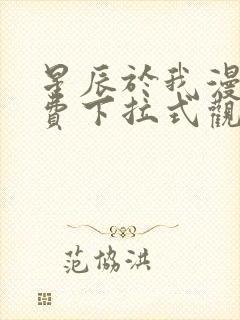 星辰於我漫
費下拉式觀
范協洪